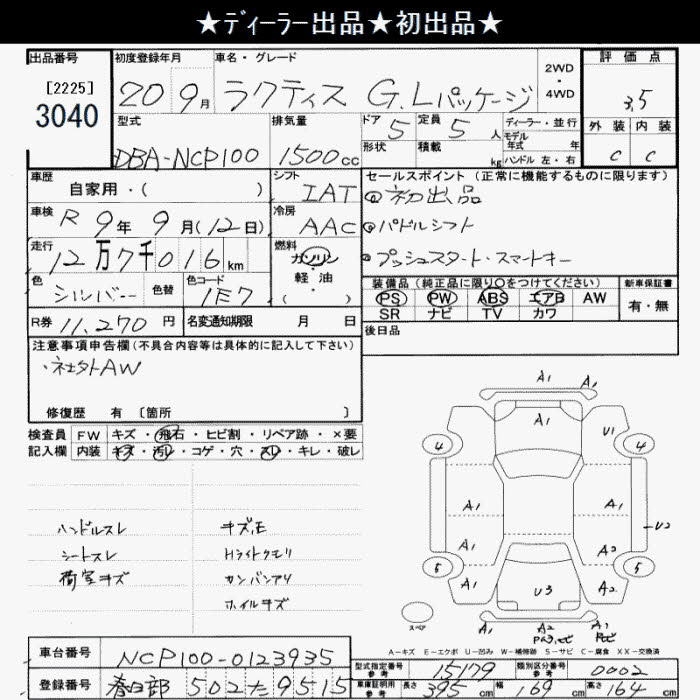 ★ディーラー出品★初出品★
出品番号 [2225] 3040
初度登録年月 20 9月
車名・グレード ラクティス G.Lパッケージ
2WD・4WD
評価点 3.5
外装 内装
C C
型式 DBA-NCP100
排気量 1500cc
ドア 5 定員 5人
形状 積載 kg
ディーラー・並行
モデル年式 年
ハンドル 左・右
車歴 自家用・( )
シフト IAT
車検 R 9年 9月(12日)
冷房 AAC
走行 12万7千016km
燃料 ガソリン・軽油 ( )
色 シルバー 色替 色コード 1E7
R券 11,270円 名変通知期限 月 日
セールスポイント (正常に機能するものに限ります)
◎初出品
◎パドルシフト
◎プッシュスタート・スマートキー
装備品 (純正品に限り○をつけてください)
PS PW ABS エアB AW
SR ナビ TV カワ
新車保証書 有・無
後日品
注意事項申告欄 (不具合内容等は具体的に記入して下さい)
・社外AW
修復歴 有 〔箇所 〕
検査員記入欄
FW キズ・飛石・ヒビ割・リペア跡・×要
内装 キズ・汚レ・コゲ・穴・スレ・キレ・破レ
ハンドルスレ キズ毛
シートスレ Hライトクモリ
荷室キズ カンバンアリ
ホイルキズ
A1 A1
A1 U1
4 4
A1 A1 U2
A1 A2
5 5
A1 U3 A2
A1 A2
スペア
A−キズ E−エクボ U−凹み W−補修跡 S−サビ C−腐食 XX−交換済
車台番号 NCP100-0123935
登録番号 春日部 502 た 9515
型式指定番号 参考 15179 類別区分番号 参考 0002
車庫証明用 参考 長さ 395cm 幅 169cm 高さ 164cm